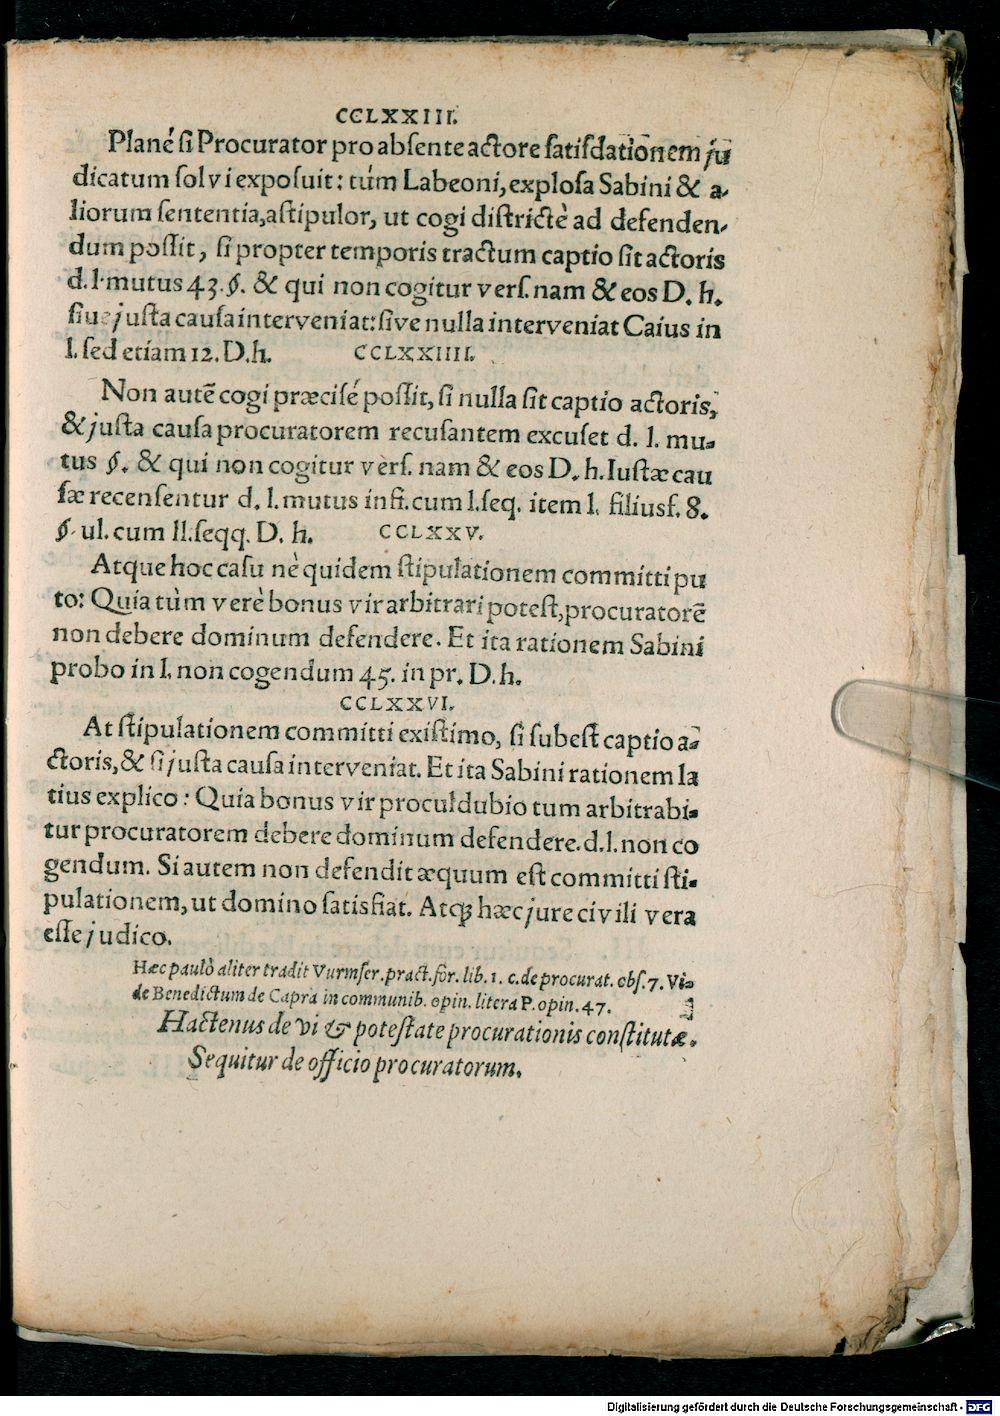 CCLXXIII.
Planè si Procurator pro absente actore satisdationem ju
dicatum solvi exposuit: tùm Labeoni, explosa Sabini & a-
liorum sententia, astipulor, ut cogi districtè ad defenden-
dum possit, si propter temporis tractum captio sit actoris
d. l. mutus 43. §. & qui non cogitur vers. nam & eos D. h.
sive justa causa interveniat: sive nulla interveniat Caius in
l. sed etiam 12. D. h. CCLXXIIII.
Non autē cogi præcisé possit, si nulla sit captio actoris,
& justa causa procuratorem recusantem excuset d. l. mu-
tus §. & qui non cogitur vers. nam & eos D. h. Iustæ cau
sæ recensentur d. l. mutus in fi. cum l. seq. item l. filiusf. 8.
§. ul. cum ll. seqq. D. h. CCLXXV.
Atque hoc casu nè quidem stipulationem committi pu
to: Quia tùm verè bonus vir arbitrari potest, procuratorē
non debere dominum defendere. Et ita rationem Sabini
probo in l. non cogendum 45. in pr. D. h.
CCLXXVI.
At stipulationem committi existimo, si subest captio a-
ctoris, & si justa causa interveniat. Et ita Sabini rationem la
tius explico: Quia bonus vir proculdubio tum arbitrabi-
tur procuratorem debere dominum defendere. d. l. non co
gendum. Si autem non defendit æquum est committi sti-
pulationem, ut domino satisfiat. Atq; hæc jure civili vera
esse judico.
Hæc paulò aliter tradit Vurmser. pract. for. lib. 1. c. de procurat. obs. 7. Vi-
de Benedictum de Capra in communib. opin. litera P. opin. 47.
Hactenus de vi & potestate procurationis constitutæ.
Sequitur de officio procuratorum.
Digitalisierung gefördert durch die Deutsche Forschungsgemeinschaft - DFG